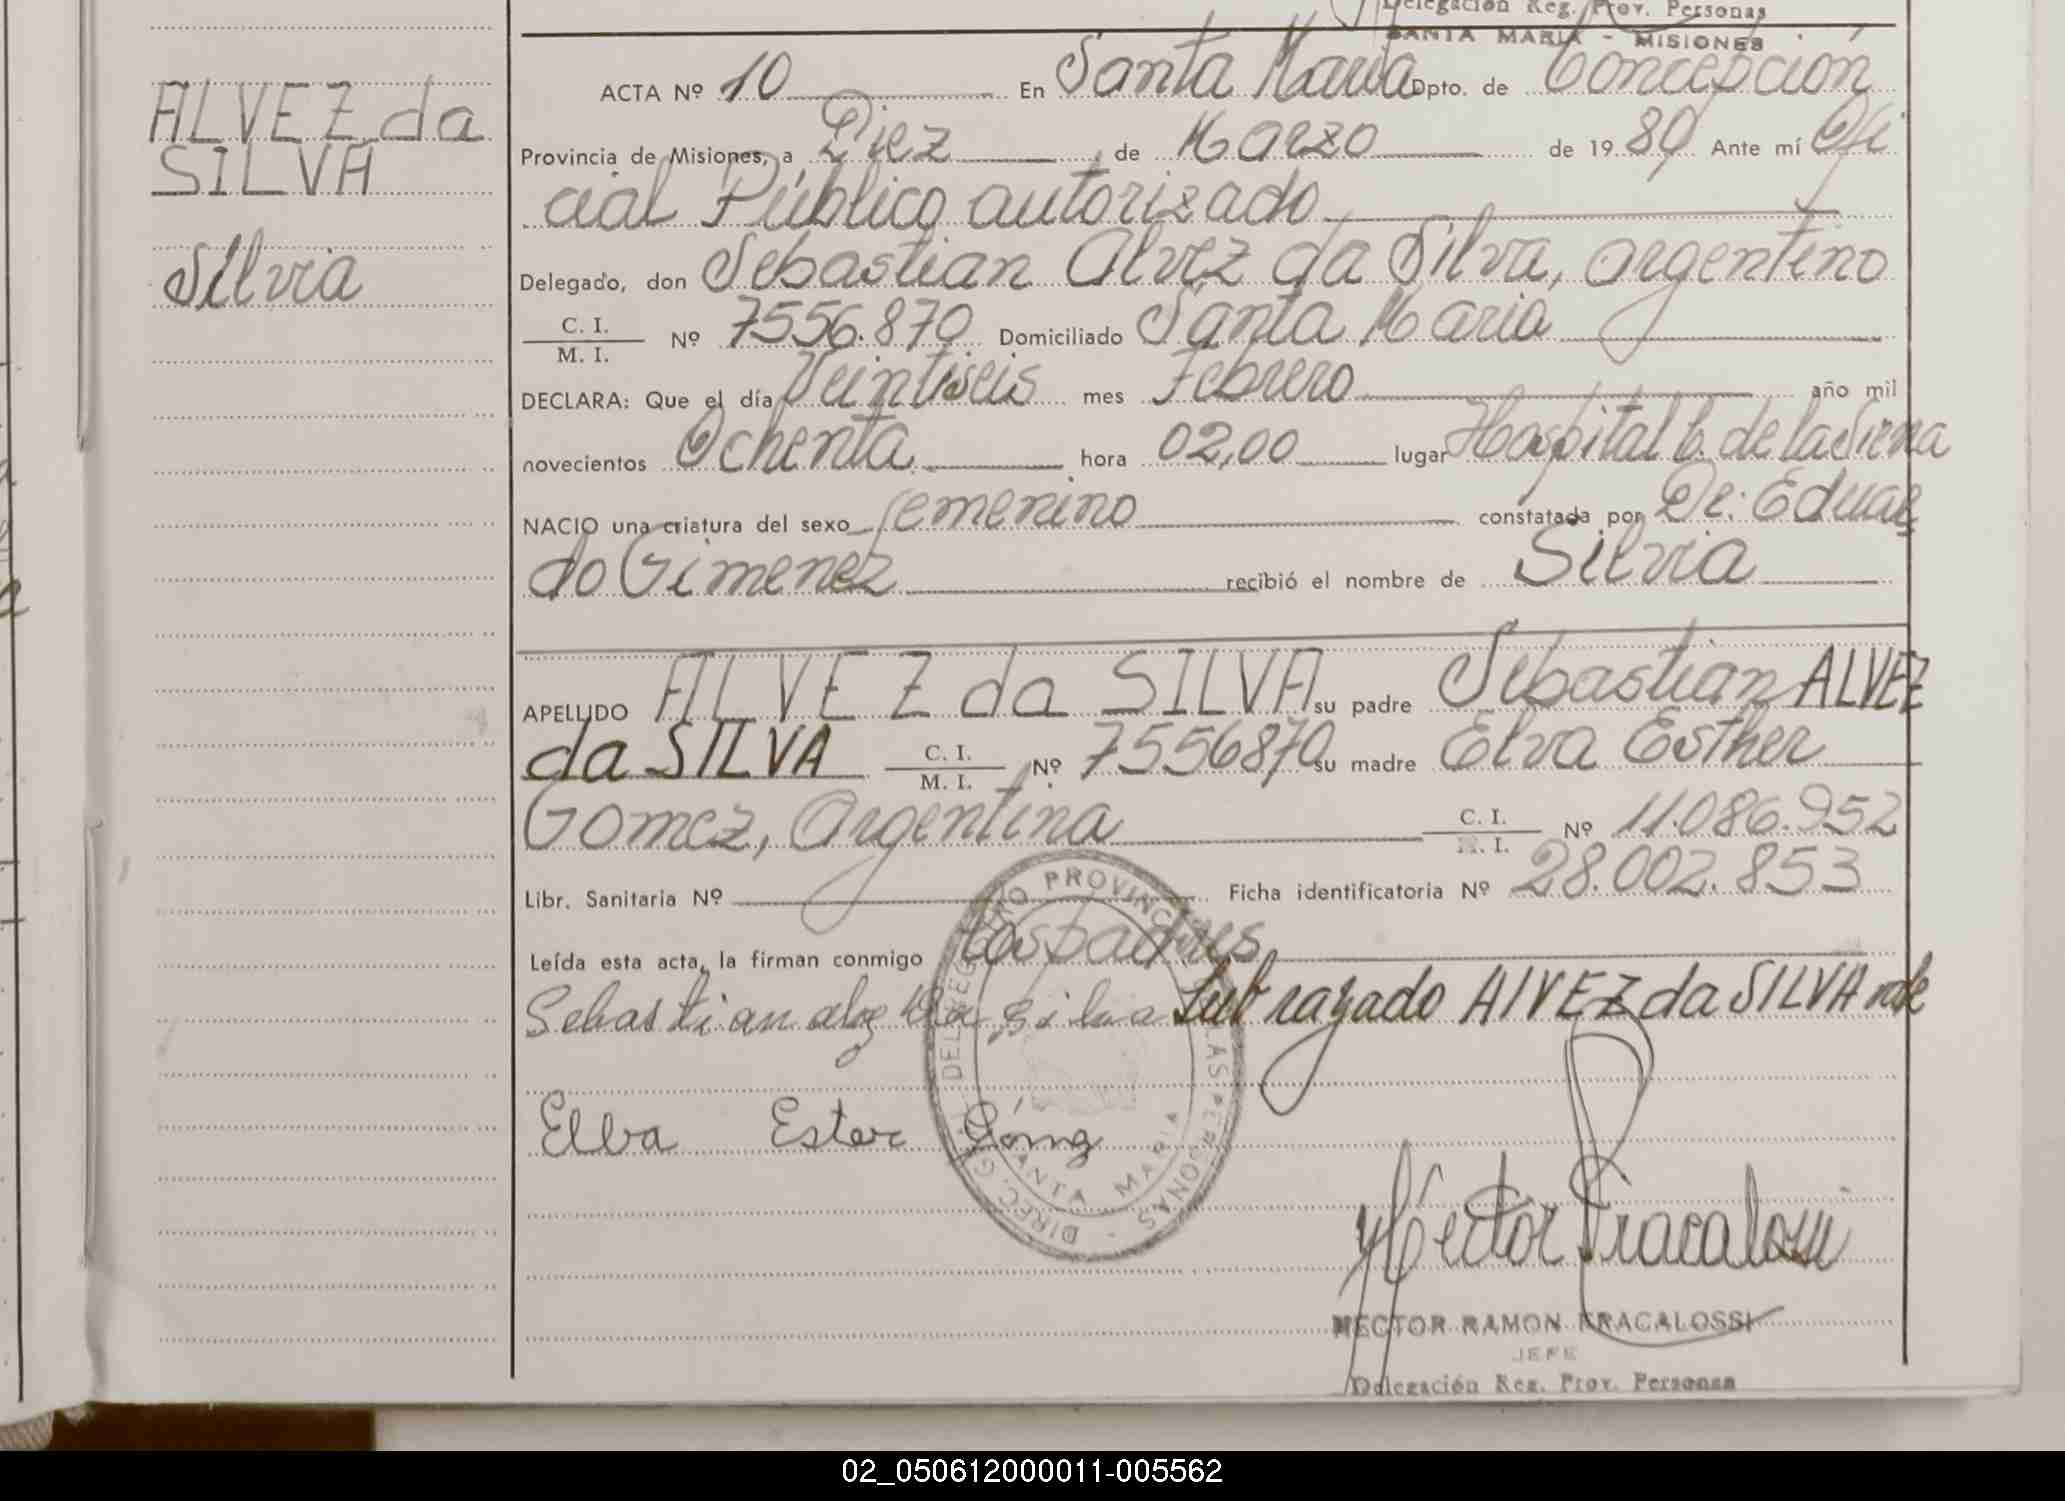 Delegación Reg. Prov. Personas
SANTA MARIA - MISIONES
ALVEZ da
SILVA
Silvia
ACTA Nº 10 En Santa Maria Dpto. de Concepción
Provincia de Misiones, a Diez de Marzo de 19 80 Ante mí Ofi
cial Público autorizado
Delegado, don Sebastian Alvez da Silva, argentino
C. I.
M. I. Nº 7556.870 Domiciliado Santa Maria
DECLARA: Que el día Veintiseis mes Febrero año mil
novecientos Ochenta hora 02,00 lugar Hospital C. de la Sierra
NACIO una criatura del sexo femenino constatada por Dr: Eduar
do Gimenez recibió el nombre de Silvia
APELLIDO ALVEZ da SILVA su padre Sebastian ALVEZ
da SILVA C. I. M. I. Nº 7556870 su madre Elva Esther
Gomez, Argentina C. I. M. I. Nº 11.086.952
Libr. Sanitaria Nº Ficha identificatoria Nº 28.002.853
Leída esta acta, la firman conmigo los padres
Sebastian alvz Da silva Sub razado AlVEZ da SILVA vale
Elba Ester Gómz
DIREC. G DELEG REGISTRO PROVINCIAL LAS PERSONAS - SANTA MARIA
Héctor Fracalossi
HECTOR RAMON FRACALOSSI
JEFE
Delegación Reg. Prov. Personas
02_050612000011-005562